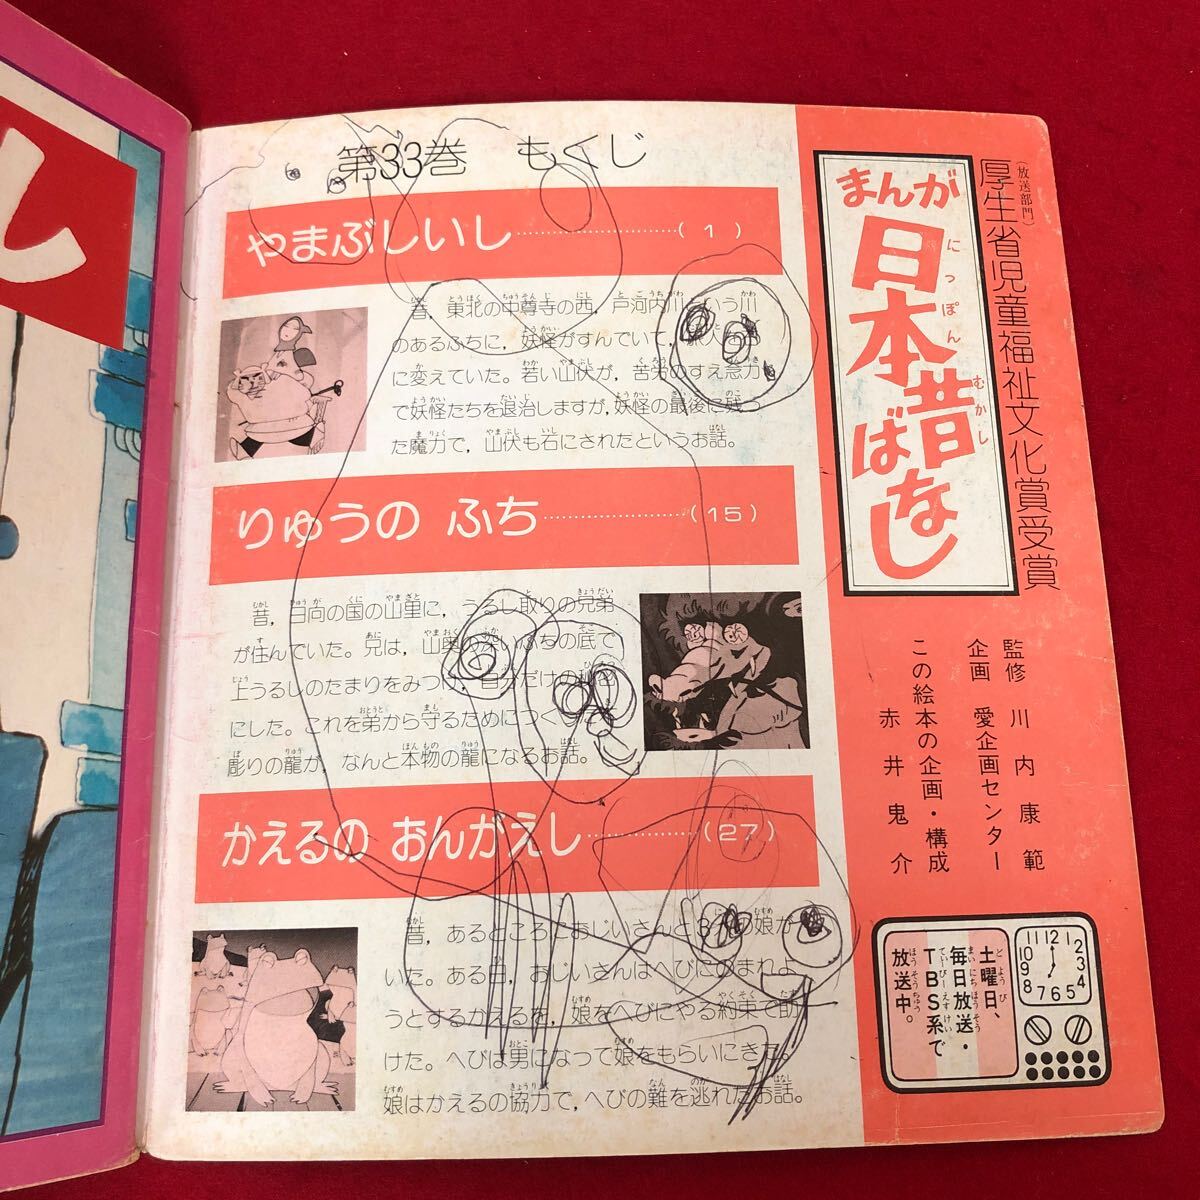 第33巻 もくじ
やまぶしいし……………………(1)
昔, 東北の中尊寺の西, 戸河内川という川
のあるふちに, 妖怪がすんでいて, 旅人を石
に変えていた。若い山伏が, 苦労のすえ念力
で妖怪たちを退治しますが, 妖怪の最後に残っ
た魔力で, 山伏も石にされたというお話。
りゅうの ふち……………………(15)
昔, 日向の国の山里に, うるし取りの兄弟
が住んでいた。兄は, 山奥の深いふちの底で
上うるしのたまりをみつけ, 自分だけの秘密
にした。これを弟から守るためにつくった木
彫りの龍が, なんと本物の龍になるお話。
かえるの おんがえし……………(27)
昔, あるところにおじいさんと3人の娘が
いた。ある日, おじいさんはへびにのまれよ
うとするかえるを, 娘をへびにやる約束で助
けた。へびは男になって娘をもらいにきた。
娘はかえるの協力で, へびの難を逃れたお話。
(放送部門)
厚生省児童福祉文化賞受賞
まんが
日本昔
にっぽんむかし
ばなし
監修 川内康範
企画 愛企画センター
この絵本の企画・構成
赤井鬼介
土曜日、
毎日放送・
TBS系で
放送中。
12 1 2 3 4 5 6 7 8 9 10 11
し